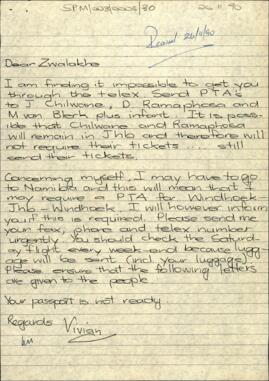 SPM/003/0005/90 26.11.90
Record 26/11/90
Dear Zwalakhe
I am finding it impossible to get you
through the telex. Send PTA's
to J Chilwane, D. Ramaphosa and
M van Blerk plus infant. It is poss-
ible that Chilwane and Ramaphosa
will remain in Jhb and therefore will
not require their tickets. still
send their tickets.
Concerning myself, I may have to go
to Namibia and this will mean that I
may require a PTA for Windhoek-
Jhb - Windhoek. I will however inform
you if this is required. Please send me
your fax, phone and telex number
urgently. You should check the Saturd-
ay flight every week and because lugg-
age will be sent (incl your luggage)
Please ensure that the following letters
are given to the people
Your passport is not ready
Regards Vivian